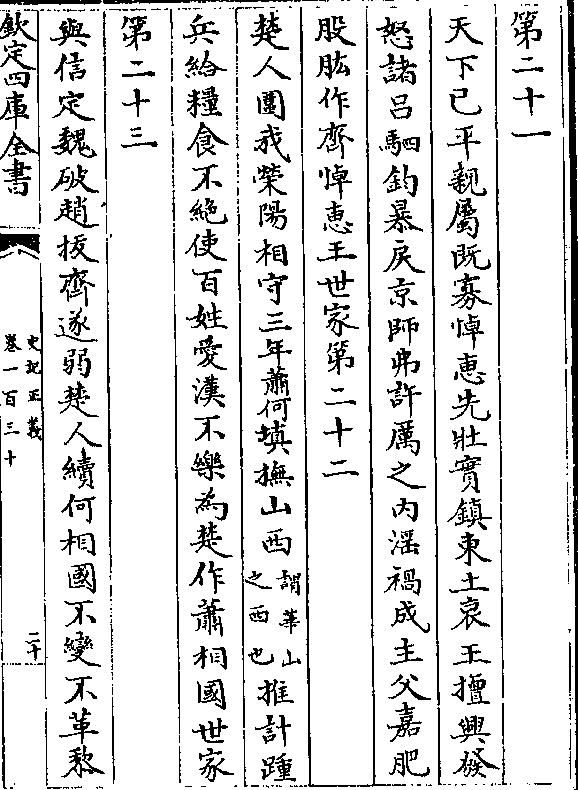 第二十一
天下已平親屬既寡悼惠先壯實鎮東土哀王擅興發
怒諸呂駟鈞暴戾京師弗許厲之内淫禍成主父嘉肥
股肱作齊悼惠王世家第二十二
楚人圍我滎陽相守三年蕭何填撫山西謂華山之西也推計踵
兵給糧食不絶使百姓愛漢不樂為楚作蕭相國世家
第二十三
與信定魏破趙拔齊遂弱楚人續何相國不變不革黎
欽定四庫全書
史記正義
卷一百三十
二十